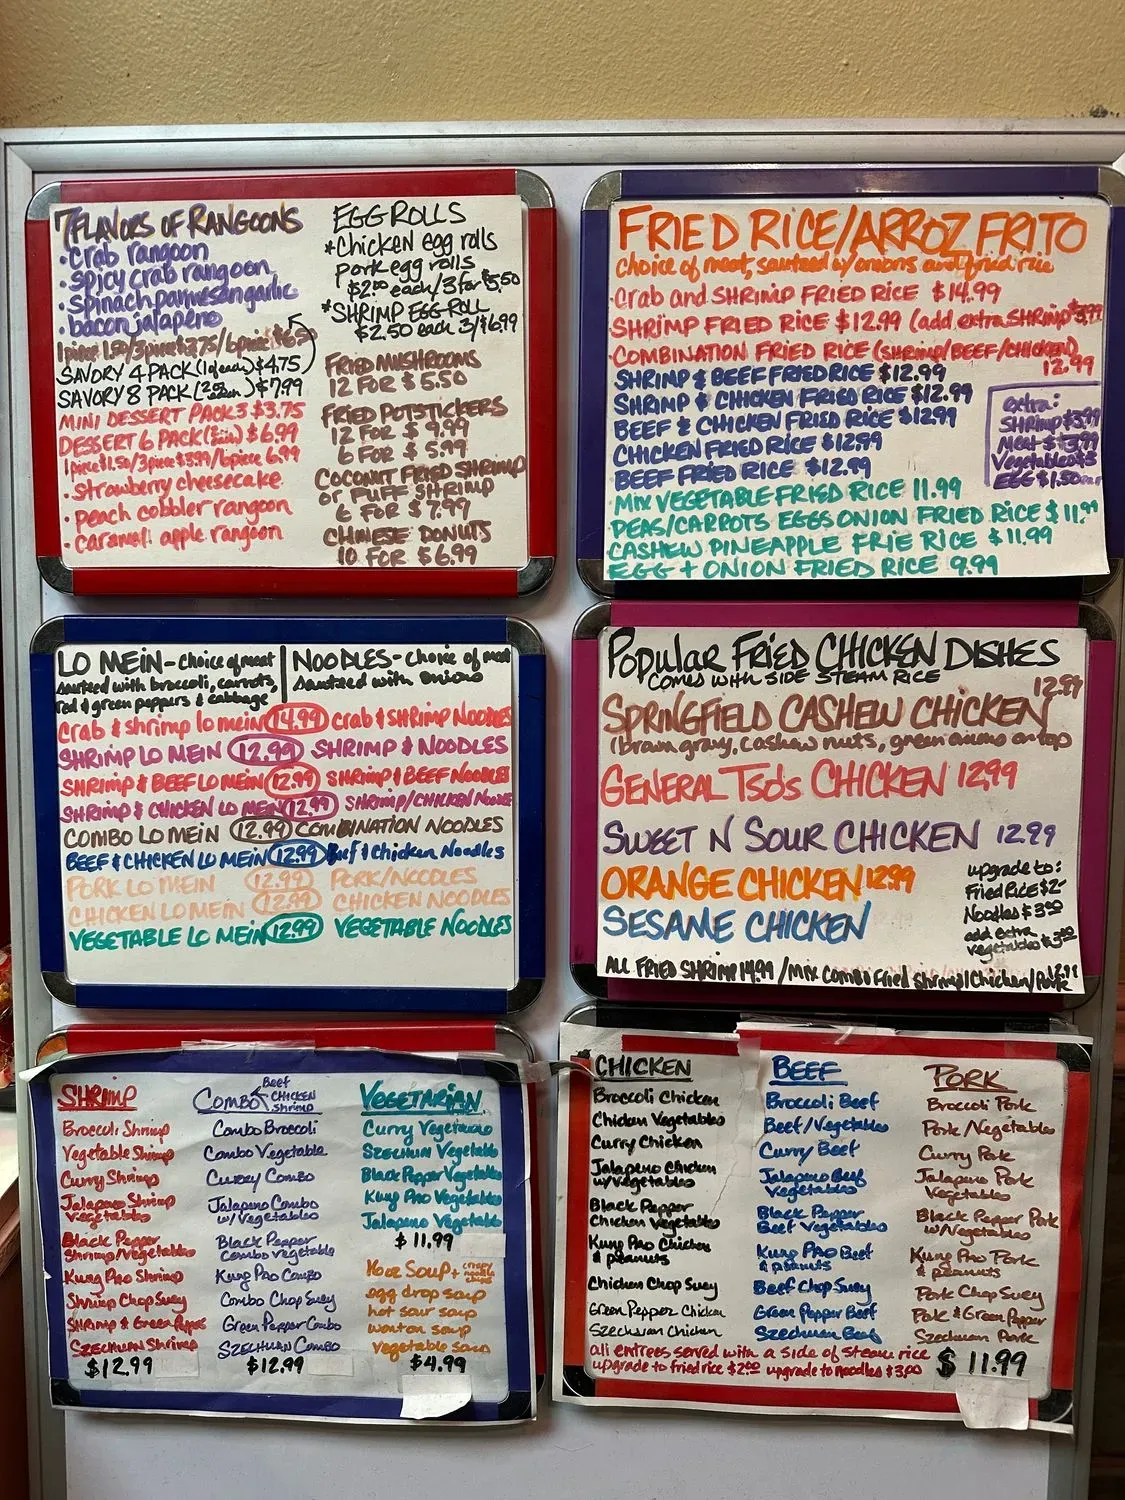 7 FLAVORS OF RANGOONS
• crab rangoon
• spicy crab rangoon
• spinach parmesan garlic
• bacon jalapeño
1 piece 1.50/3 piece $3.75/6 piece $6.50
SAVORY 4 PACK (1 of each) $4.75
SAVORY 8 PACK (2 of each) $7.99
MINI DESSERT PACK 3 $3.75
DESSERT 6 PACK $6.99
1 piece $1.50/3 piece $3.99/6 piece 6.99
• strawberry cheesecake
• peach cobbler rangoon
• caramel apple rangoon
EGG ROLLS
* Chicken egg rolls
pork egg rolls
$2.00 each/3 for $5.50
* SHRIMP EGG ROLL
$2.50 each 3/$6.99
FRIED MUSHROOMS
12 FOR $5.50
FRIED POTSTICKERS
12 FOR $9.99
6 FOR $5.99
COCONUT FRIED SHRIMP
or PUFF SHRIMP
6 FOR $7.99
CHINESE DONUTS
10 FOR $6.99
FRIED RICE/ARROZ FRITO
choice of meat, sauteed w/ onions and fried rice
• Crab and SHRIMP FRIED RICE $14.99
SHRIMP FRIED RICE $12.99 (add extra SHRIMP $3.99
• COMBINATION FRIED RICE (shrimp/BEEF/CHICKEN)
12.99
SHRIMP & BEEF FRIED RICE $12.99
SHRIMP & CHICKEN FRIED RICE $12.99
BEEF & CHICKEN FRIED RICE $12.99
CHICKEN FRIED RICE $12.99
BEEF FRIED RICE $12.99
MIX VEGETABLE FRIED RICE 11.99
PEAS/CARROTS EGGS ONION FRIED RICE $11.99
CASHEW PINEAPPLE FRIE RICE $11.99
EGG + ONION FRIED RICE 9.99
extra:
SHRIMP $3.99
Meat $3.99
Vegetables $3
EGG $1.50
LO MEIN - choice of meat
sauteed with broccoli, carrots,
red & green peppers & cabbage
NOODLES - choice of meat
sauteed with onions
crab & shrimp lo mein 14.99 crab & SHRIMP NOODLES
SHRIMP LO MEIN 12.99 SHRIMP & NOODLES
SHRIMP & BEEF LO MEIN 12.99 SHRIMP & BEEF NOODLES
SHRIMP & CHICKEN LO MEIN 12.99 SHRIMP/CHICKEN NOODLES
COMBO LO MEIN 12.99 COMBINATION NOODLES
BEEF & CHICKEN LO MEIN 12.99 Beef & Chicken Noodles
PORK LO MEIN 12.99 PORK/NOODLES
CHICKEN LO MEIN 12.99 CHICKEN NOODLES
VEGETABLE LO MEIN 12.99 VEGETABLE NOODLES
Popular FRIED CHICKEN DISHES
comes with SIDE STEAM RICE
12.99
SPRINGFIELD CASHEW CHICKEN
(brown gravy, cashew nuts, green onions on top
GENERAL Tso's CHICKEN 12.99
SWEET N SOUR CHICKEN 12.99
ORANGE CHICKEN 12.99
SESAME CHICKEN
upgrade to:
Fried Rice $2
Noodles $3.00
add extra
vegetables $3.00
ALL FRIED SHRIMP 14.99 / Mix Combo Fried Shrimp/Chicken/Pork
SHRIMP
Broccoli Shrimp
Vegetable Shrimp
Curry Shrimp
Jalapeno Shrimp
Vegetables
Black Pepper
Shrimp/vegetables
Kung Pao Shrimp
Shrimp Chop Suey
Shrimp & Green Peppers
Szechuan Shrimp
$12.99
COMBO Beef
CHICKEN
Shrimp
Combo Broccoli
Combo Vegetable
Curry Combo
Jalapeno Combo
w/ Vegetables
Black Pepper
Combo vegetable
Kung Pao Combo
Combo Chop Suey
Green Pepper Combo
SZECHUAN COMBO
$12.99
VEGETARIAN
Curry Vegetables
SZECHUAN Vegetables
Black Pepper Vegetables
Kung Pao Vegetables
Jalapeno Vegetable
$11.99
16oz SOUP + crispy
noodle chips
egg drop soup
hot sour soup
wonton soup
vegetable soup
$4.99
CHICKEN
Broccoli Chicken
Chicken Vegetables
Curry Chicken
Jalapeno Chicken
w/vegetables
Black Pepper
Chicken Vegetables
Kung Pao Chicken
& peanuts
Chicken Chop Suey
Green Pepper Chicken
Szechuan Chicken
BEEF
Broccoli Beef
Beef/Vegetables
Curry Beef
Jalapeno Beef
Vegetables
Black Pepper
Beef Vegetables
Kung Pao Beef
& peanuts
Beef Chop Suey
Green Pepper Beef
Szechuan Beef
PORK
Broccoli Pork
Pork/Vegetables
Curry Pork
Jalapeno Pork
Vegetables
Black Pepper Pork
w/Vegetables
Kung Pao Pork
& peanuts
Pork Chop Suey
Pork & Green Pepper
Szechuan Pork
all entrees served with a side of steam rice
upgrade to fried rice $2.00 upgrade to noodles $3.00
$11.99